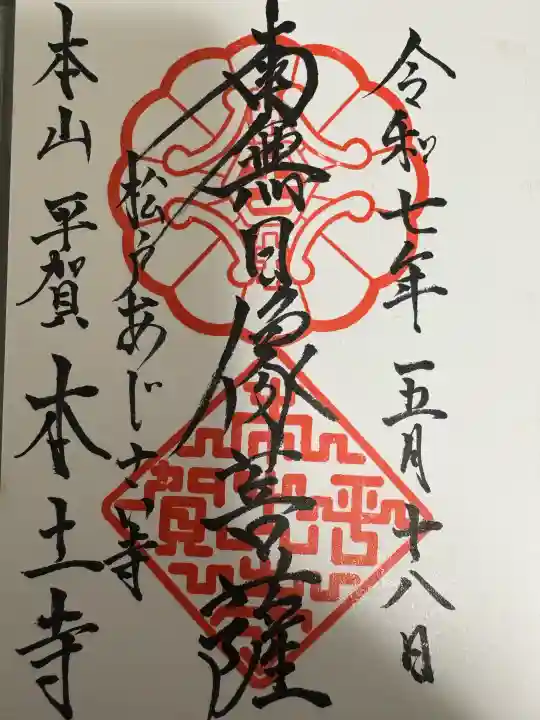 令和七年 五月十八日
南無日像菩薩
松戸あじさい寺
本山 平賀 本土寺